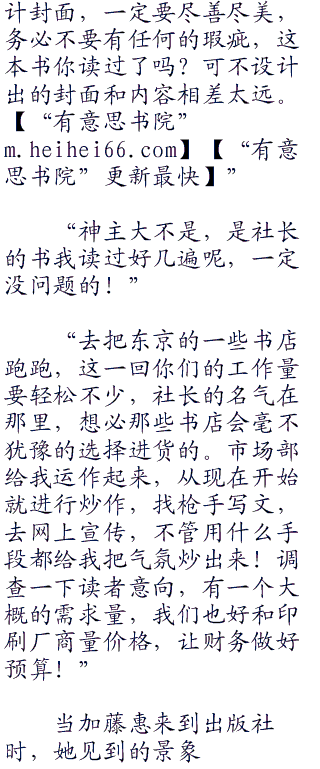 计封面，一定要尽善尽美，
务必不要有任何的瑕疵，这
本书你读过了吗？可不设计
出的封面和内容相差太远。
【“有意思书院”
m.heihei66.com】【“有意
思书院”更新最快】”
“神主大不是，是社长
的书我读过好几遍呢，一定
没问题的！”
“去把东京的一些书店
跑跑，这一回你们的工作量
要轻松不少，社长的名气在
那里，想必那些书店会毫不
犹豫的选择进货的。市场部
给我运作起来，从现在开始
就进行炒作，找枪手写文，
去网上宣传，不管用什么手
段都给我把气氛炒出来！调
查一下读者意向，有一个大
概的需求量，我们也好和印
刷厂商量价格，让财务做好
预算！”
当加藤惠来到出版社
时，她见到的景象